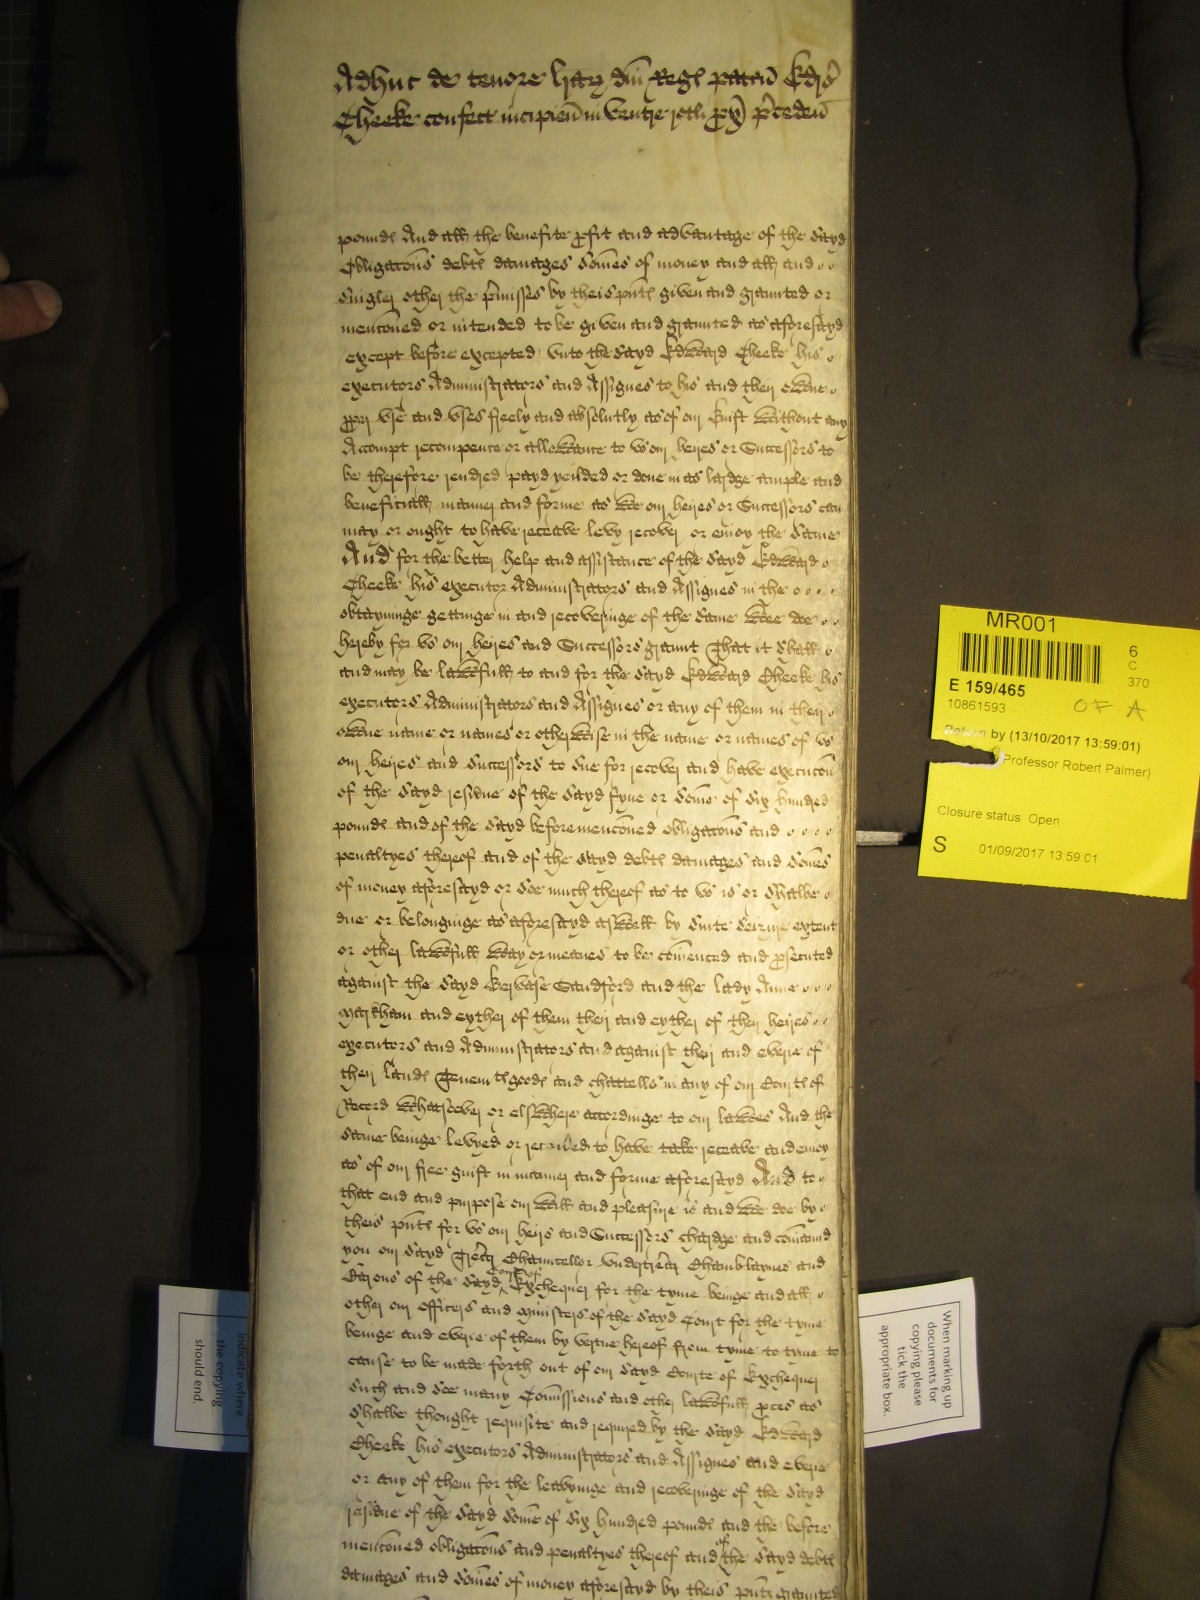 Adhuc de tenore lrar dni Regs paten Edri
Cheeke confect incipien in ventre rotli preceden
pounds And all the benefite profit and advantage of the sayd
Obligacons debts damages somes of money and all and
singler other the premisses by theis pnts given and graunted or
menconed or intended to be given and graunted as aforesayd
except before excepted vnto the sayd Edward Cheeke his
executors Administrators and Assignes to his and their owne
proper vse and vses freely and absolutly as of our guift without any
Accompt recompence or allowance to vs our heires or Successors to
be therefore rendred payd yeilded or done in as lardge ample and
beneficiall manner and forme as wee our heires or Successors can
may or ought to have receave levy recover or enioy the same
And for the better help and assistance of the sayd Edward
Cheeke his executor Administrators and Assignes in the
obtayninge gettinge in and recoveringe of the same Wee doe
hereby for vs our heires and Successors graunt That it shall
and may be lawfull to and for the sayd Edward Cheeke his
executors Administrators and Assignes or any of them in their
owne name or names or otherwise in the name or names of vs
our heires and successors to sue for recover and have execucon
of the sayd residue of the sayd fyne or some of six hundred
pounds and of the sayd beforemenconed obligacons and
penaltyes thereof and of the sayd debts damages and somes
of money aforesayd or soe much thereof as to vs is or shalbe
due or belonginge as aforesayd aswell by suite seizure extent
or other lawfull way or meanes to be comenced and prosecuted
against the sayd Gervase Sandford and the lady Anne
Markham and eyther of them their and eyther of their heires
executors and Administrators and against their and everie of
their lands Tenemts goods and chattells in any of our Courts of
Record whatsoever or elswhere accordinge to our lawes And the
same beinge levyed or recovered to have take receave and enioy
as of our free guift in manner and forme aforesayd And to
that end and purpose our will and pleasure is and wee doe by
theis pnts for vs our heirs and Successors chardge and comaund
you our sayd Trer Chauncellor vndertrer Chamblaynes and
Barons of the sayd Court of Exchequer for the tyme beinge and all
other our officers and ministers of the sayd Court for the tyme
beinge and everie of them by vertue hereof from tyme to tyme to
cause to be made forth out of our sayd Courte of Exchequer
such and soe many Comissions and other lawfull proces as
shalbe thought requisite and required by the sayd Edward
Cheeke his executors Administrators and Assignes and everie
or any of them for the leavyinge and recoveringe of the sayd
residue of the sayd some of six hundred pounds and the before
menconed obligacons and penaltyes thereof and of the sayd debts
damages and somes of money aforesayd by theis pnts graunted
MR001
6
C
370
E 159/465
10861593
OF A
Return by (13/10/2017 13:59:01)
Professor Robert Palmer)
Closure status Open
S 01/09/2017 13:59:01
When marking up
documents for
copying please
tick the
appropriate box.
indicate where
the copying
should end.